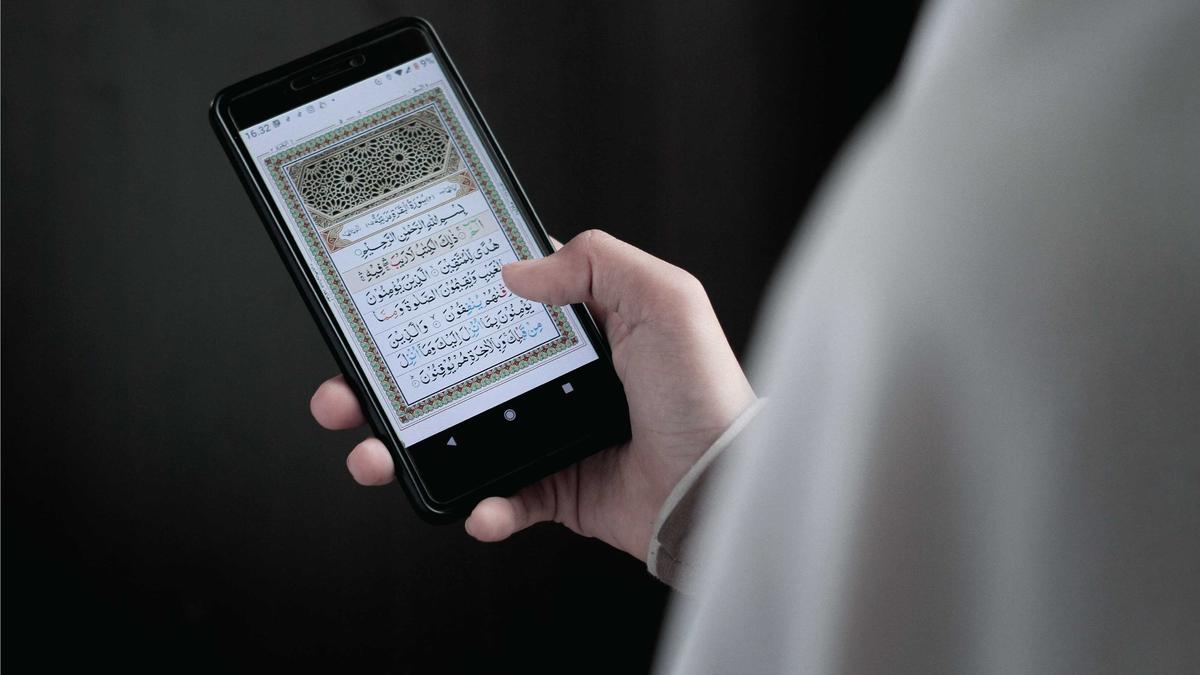 16.32 9%
سُورَةُ الْبَقَرَةِ مَدَنِيَّةٌ
بِسْمِ اللّٰهِ الرَّحْمٰنِ الرَّحِيْمِ
الٓمّٓ ذٰلِكَ الْكِتٰبُ لَا رَيْبَ فِيْهِ
هُدًى لِّلْمُتَّقِيْنَ الَّذِيْنَ يُؤْمِنُوْنَ
بِالْغَيْبِ وَيُقِيْمُوْنَ الصَّلٰوةَ وَمِمَّا
قْنٰهُمْ يُنْفِقُوْنَ وَالَّذِيْنَ
يُؤْمِنُوْنَ بِمَآ اُنْزِلَ اِلَيْكَ وَمَآ اُنْزِلَ
مِنْ قَبْلِكَ وَبِالْاٰخِرَةِ هُمْ يُوْقِنُوْنَ